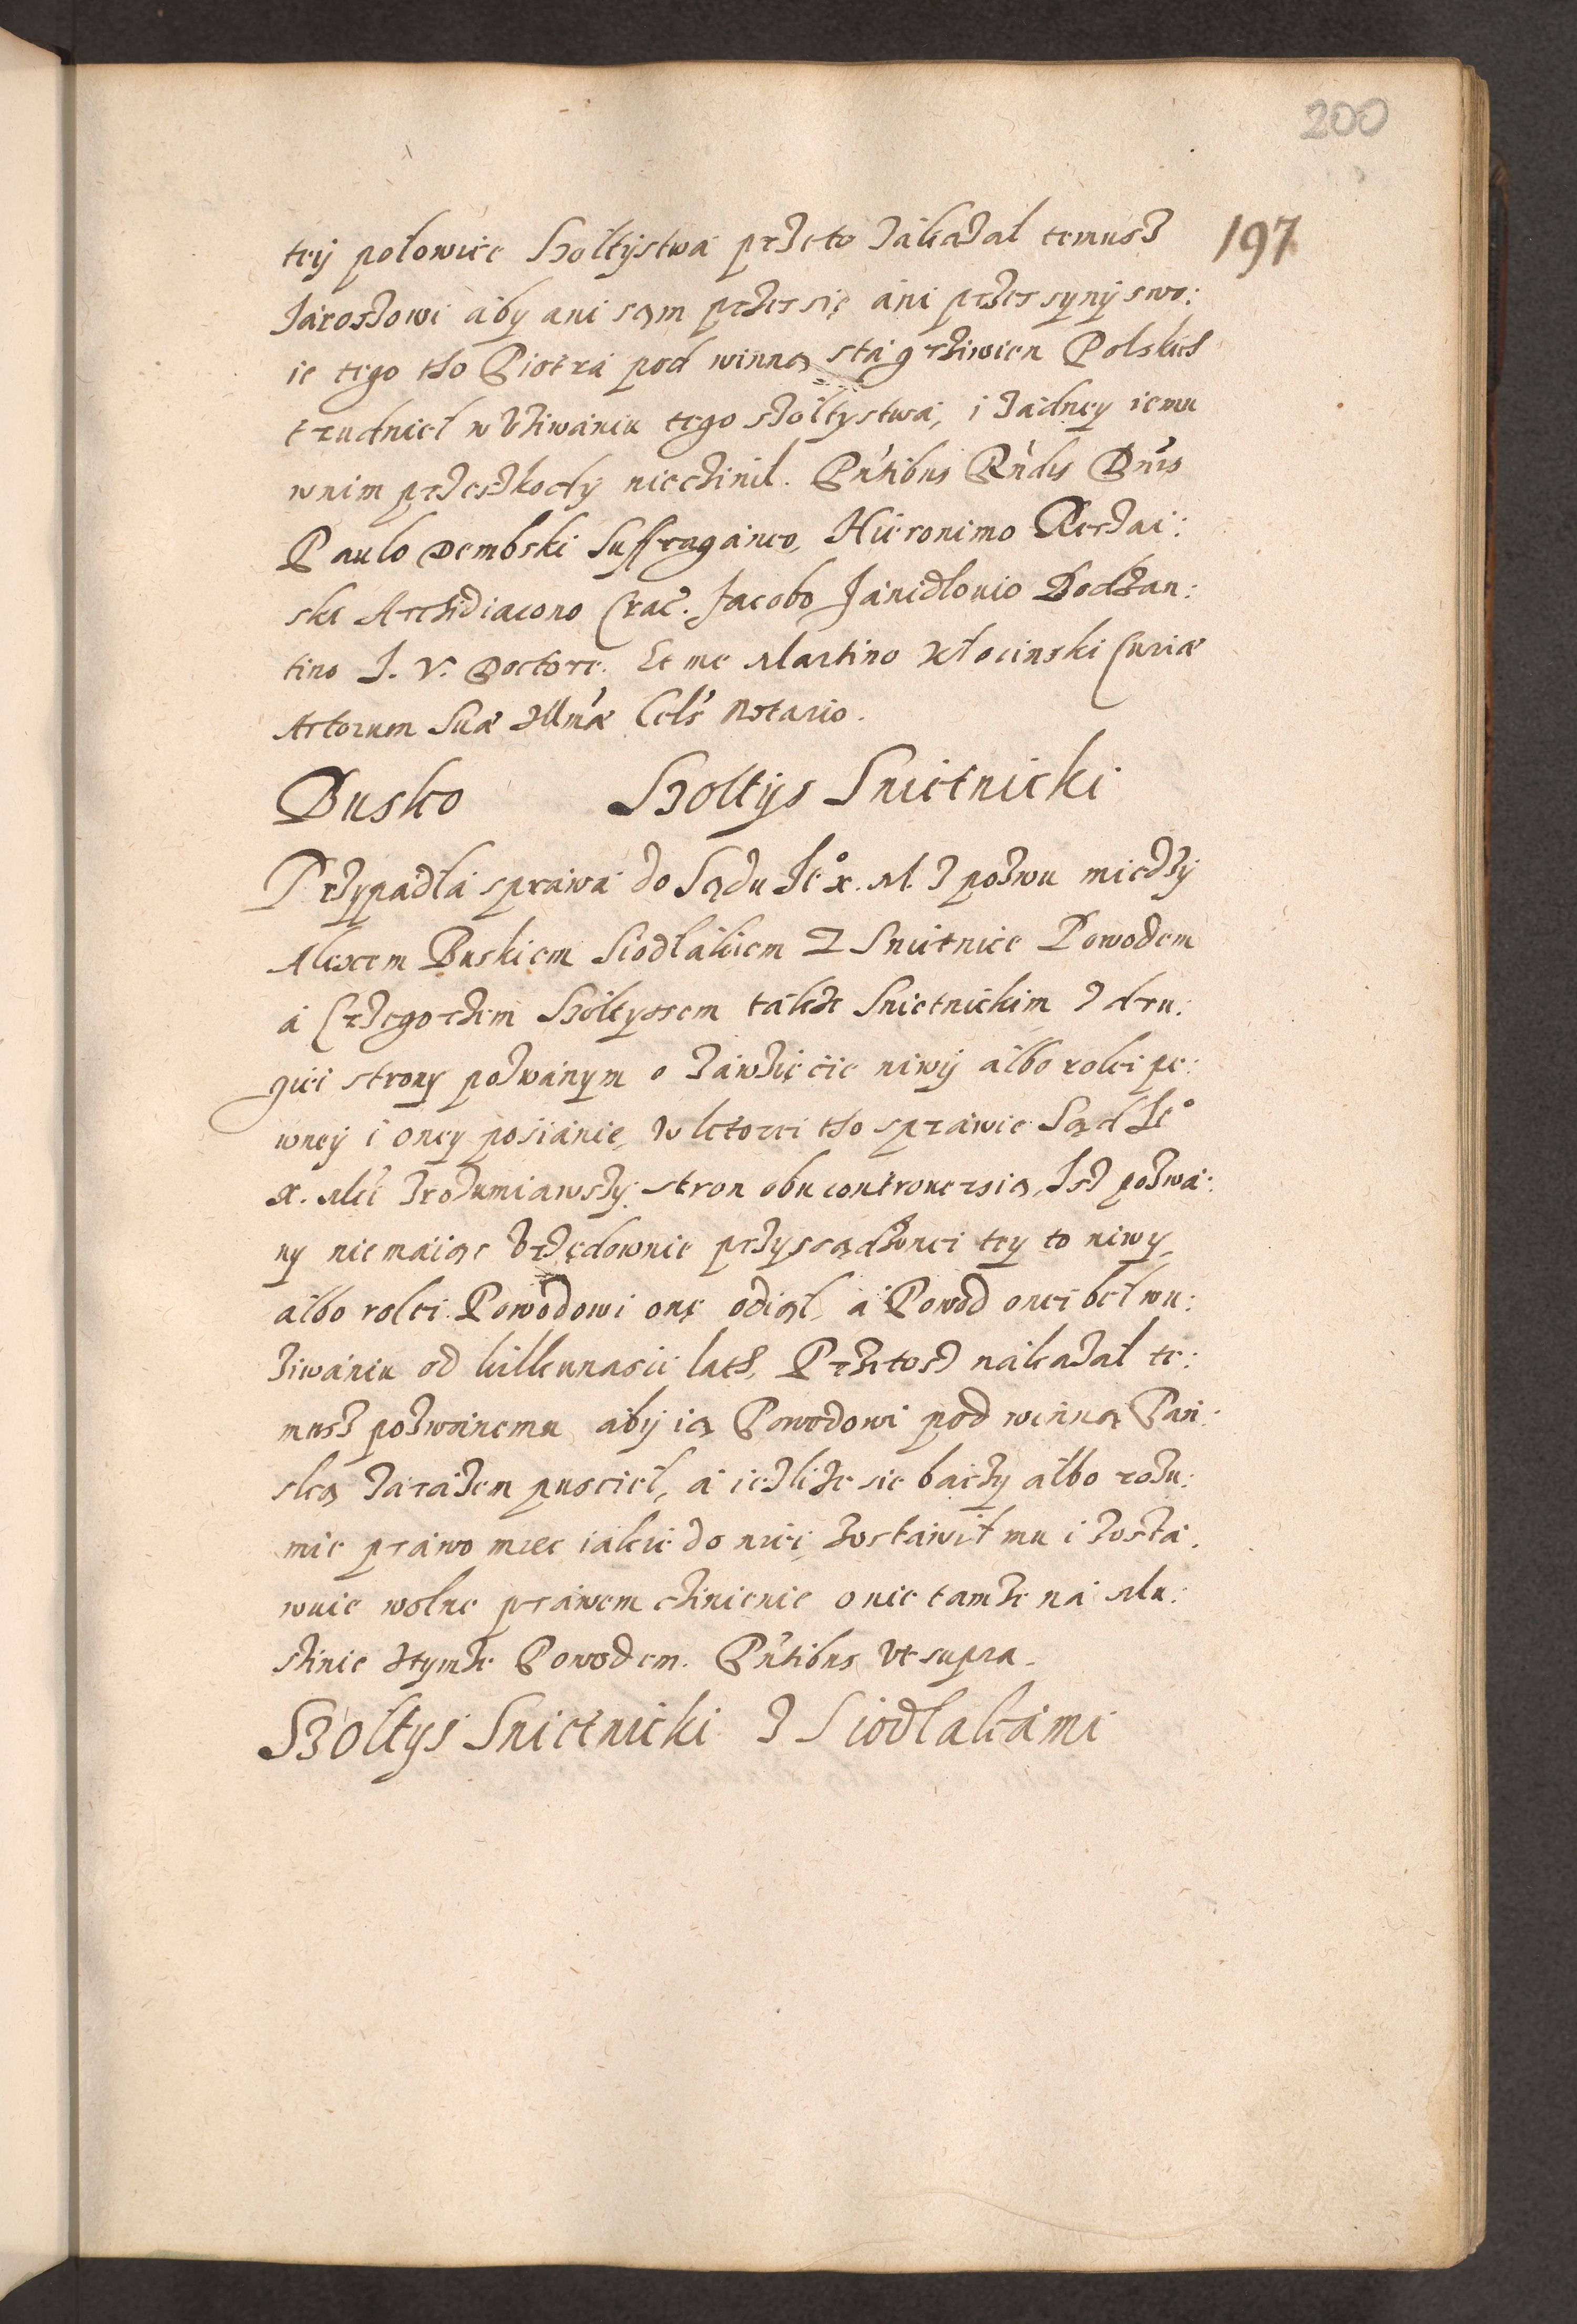 200
197
teÿ połowice Szołtÿstwa przeto zakazał temusz
Jaroszowi aby ani sąm przes się ani przes synÿ swo:
ie tego tho Piotra pod winną sta grziwien Polskich
trudnieł w Vziwaniu tego szołtystwa, i żadney iemu
wnim przeszkodÿ nieczinil. Pntibus Rndis Dnis
Paulo Dembski Suffraganeo, Hieronimo Rerzai:
ski Archidiacono Crac. Jacobo Janidlouio Bodzan:
tino J. V. Doctore. Et me Martino Kłocinski Curiæ
Actorum Suæ Illmæ Cels Notario.
Dusko Szoltÿs Snietnicki
Przypadła sprawa do Sądu Je° x. M. z pozwu miedzÿ
Alexem Duskiem Siodłakiem z Snietnice Powodem
a Grzegorzem Szołtyssem takze Snietnickim z dru:
giei stronÿ pozwanym o zawzięcie niwÿ albo rolei pe:
wneÿ i oney posianie, w ktorei tho sprawie Sąd Je°
x. Mci zrozumiawszy stron obu controuersią, Isz pozwa:
ny nie maiąc Vrzędownie przysądzonei tey to niwy
albo rolei Powodowi onę odiął, a Powod onei beł wu:
ziwaniu od kilkunascie lath, Przetosz nakazał te:
musz pozwanemu abÿ ią Powodowi pod winną Pan:
ską zarazem puscieł, a iezlize sie baczy albo rozu:
mie prawo miec iakie do niei, zostawił mu i zosta:
wuie wolne prawem czinienie o nie tamze na Mu:
szinie ztymze Powodem. Pntibus Vt supra.
Szołtÿs Snietnicki z Siodłakami